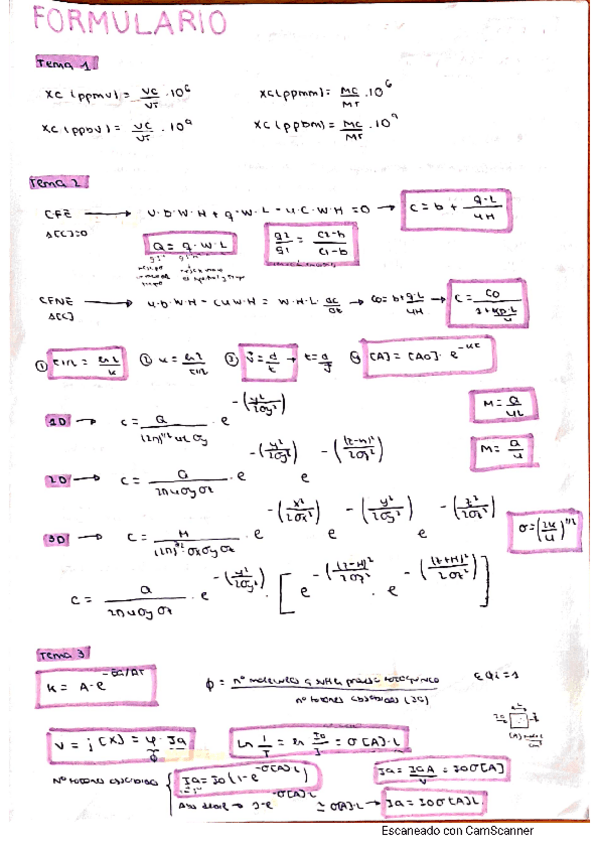 FORMULARIO
Tema 1
XC (ppmv) = VC/VT · 10⁶    XC (ppmm) = MC/MT · 10⁶
XC (ppbv) = VC/VT · 10⁹    XC (ppbm) = MC/MT · 10⁹
Tema 2
CFE → U·b·W·H + q·W·L - u·C·W·H = 0 → C = b + q·L/uH
Δ[C]=0
Q = q·W·L    q2/q1 = C2-b/C1-b
CFNE → u·b·W·H - CUWH = W·H·L · → C0 = b + q·L/uH → C = C0
Δ[C]
① t1/2 = ln2/k ② k = ln2/t1/2 ③ J = d/t → t = d/J ④ [A] = [A0] · e^-kt
1D → C = Q/(2π)^1/2 uL σy · e^-(y²/2σy²)    M = Q/uL
2D → C = Q/2πuσyσz · e^-(y²/2σy²) e^-((z-H)²/2σz²)    M = Q/u
3D → C = M/(2π)^3/2 · σxσyσz · e^-(x²/2σx²) e^-(y²/2σy²) e^-(z²/2σz²)    σ = ^1/2
C = Q/2πuσyσz · e^-(y²/2σy²) · [e^-((z-H)²/2σz²) · e^-((z+H)²/2σz²)]
Tema 3
k = A·e^-Ea/RT    ϕ = nº moléculas q sufren proceso fotoquímico/nº fotones absorbidos    ΣQi = 1
V = j[X] = φ · Ia    Ln 1/T = ln I0/I = σ[A]·L
Nº fotones absorbidos    Ia = I0(1-e^-σ[A]L)    Ia = I0σ[A]
1-e^-σ[A]L ≅ σ[A]·L → Ia = I0σ[A]L
Escaneado con CamScanner